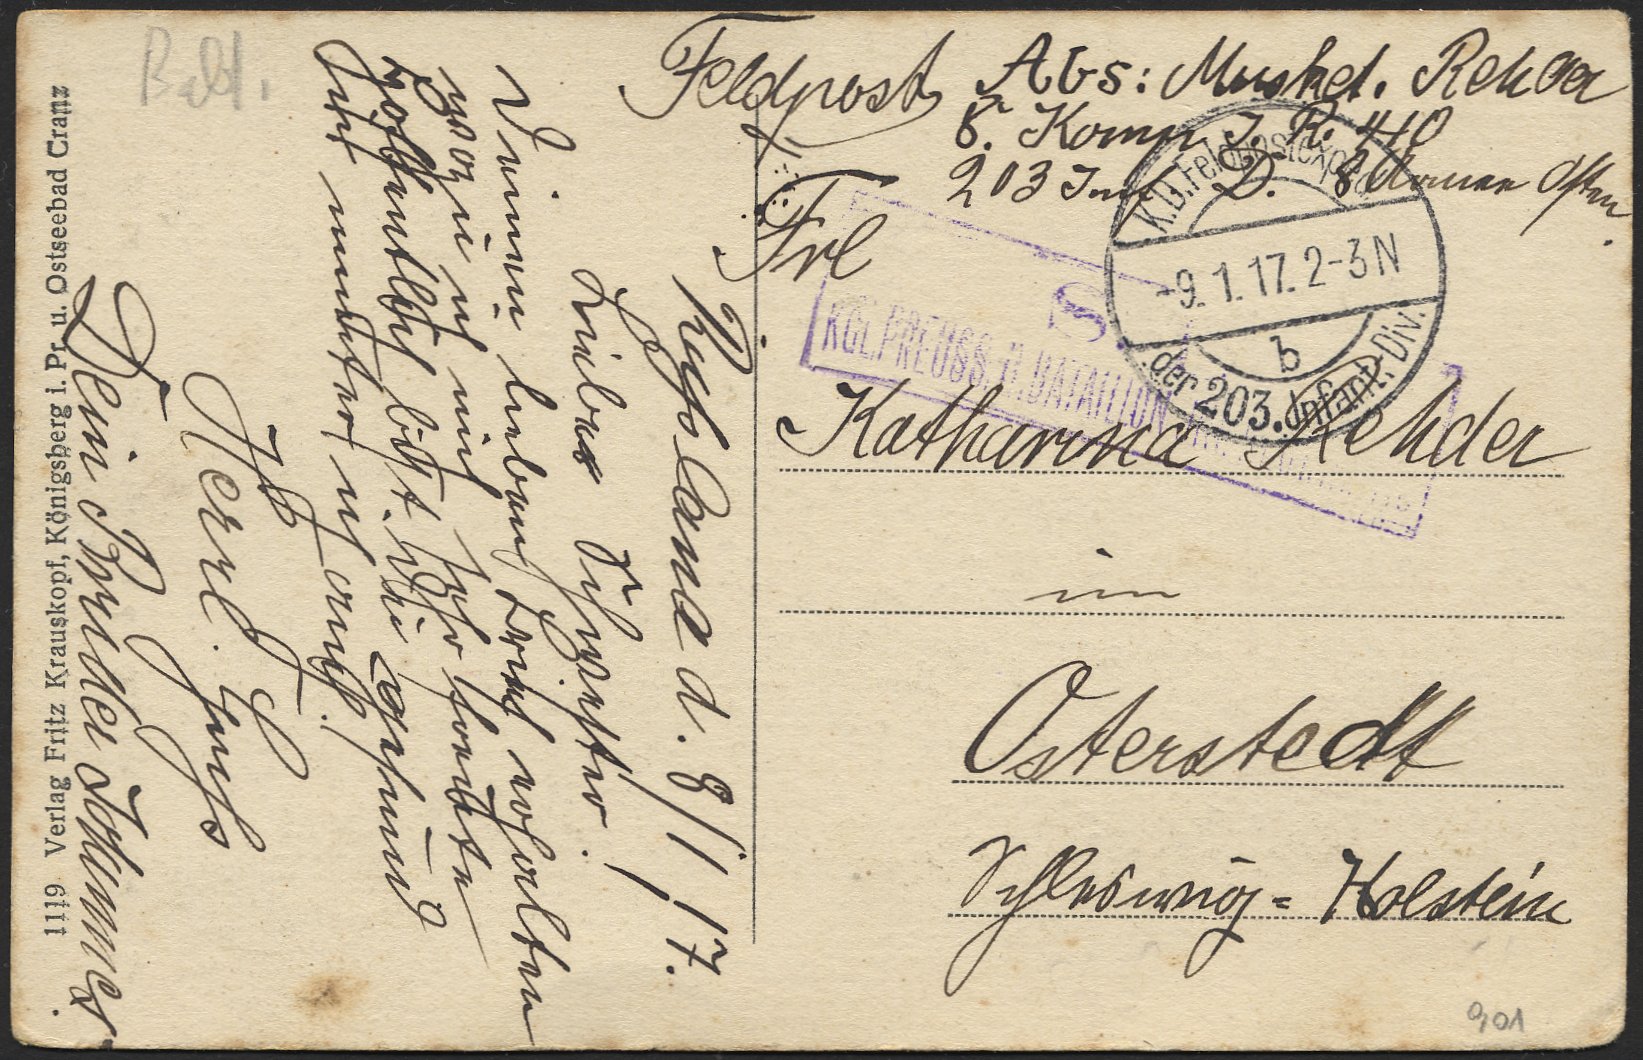 Feldpost
Abs: Musket. Rehder
8. Komp J. R. 410
203 Inf. D. 8 Armee Osten.
K.D. Feldpostexped.
-9. 1. 17. 2-3 N
b
der 203. Infant.-Div.
S
KGL. PREUSS. II. BATAILLON
Frl
Katharina Rehder
in
Osterstedt
Schleswig-Holstein
Russland d. 8/1/17.
Liebe Schwester.
Deinen lieben Brief erhalten
wozu ich mich sehr freute
hoffentlich bist. Du gesund
und munter ich auch.
Herzl. Gruß
Dein Bruder Johannes
1119 Verlag Fritz Krauskopf, Königsberg i. Pr. u. Ostseebad Cranz
Balt.
901